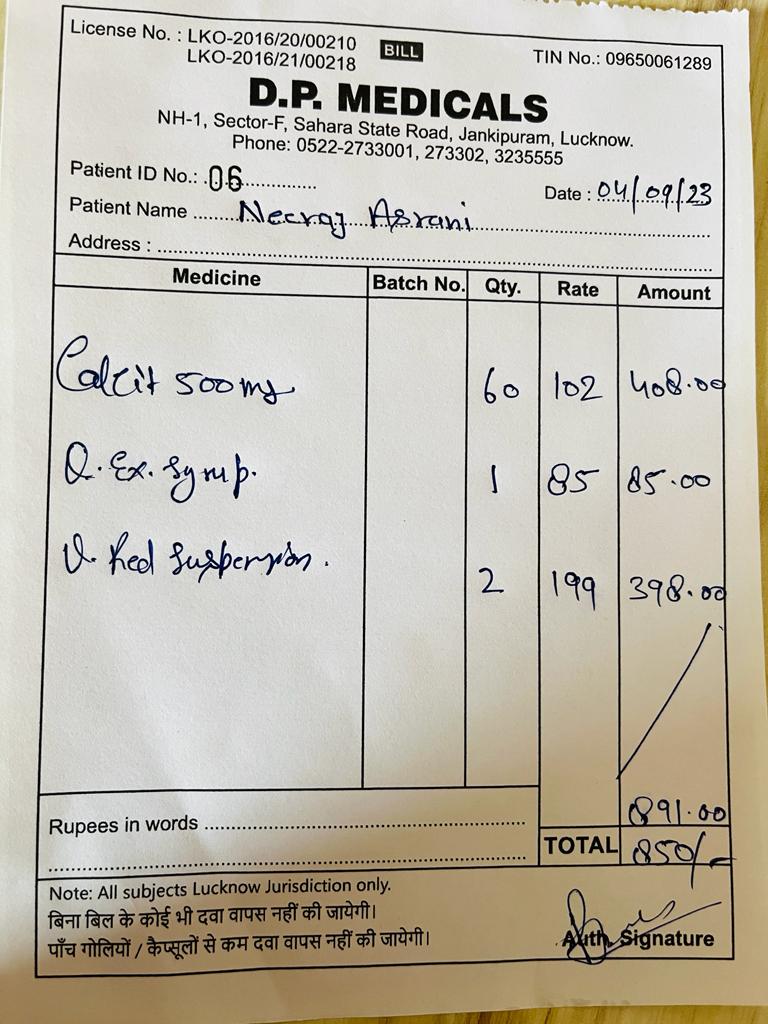 License No. : LKO-2016/20/00210
LKO-2016/21/00218
BILL
TIN No.: 09650061289
D.P. MEDICALS
NH-1, Sector-F, Sahara State Road, Jankipuram, Lucknow.
Phone: 0522-2733001, 273302, 3235555
Patient ID No.: 06
Date : 04/09/23
Patient Name Neeraj Asrani
Address :
Medicine Batch No. Qty. Rate Amount
Calcit 500mg 60 102 408.00
Q. Ex. Syrup. 1 85 85.00
V. Red Suspension. 2 199 398.00
891.00
Rupees in words
TOTAL 850/-
Note: All subjects Lucknow Jurisdiction only.
बिना बिल के कोई भी दवा वापस नहीं की जायेगी।
पाँच गोलियों / कैप्सूलों से कम दवा वापस नहीं की जायेगी।
Auth. Signature